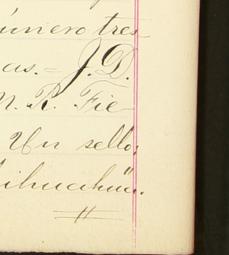 úmero tres
as. = J. D.
M. R. Fie
Un sello:
ihuahua.